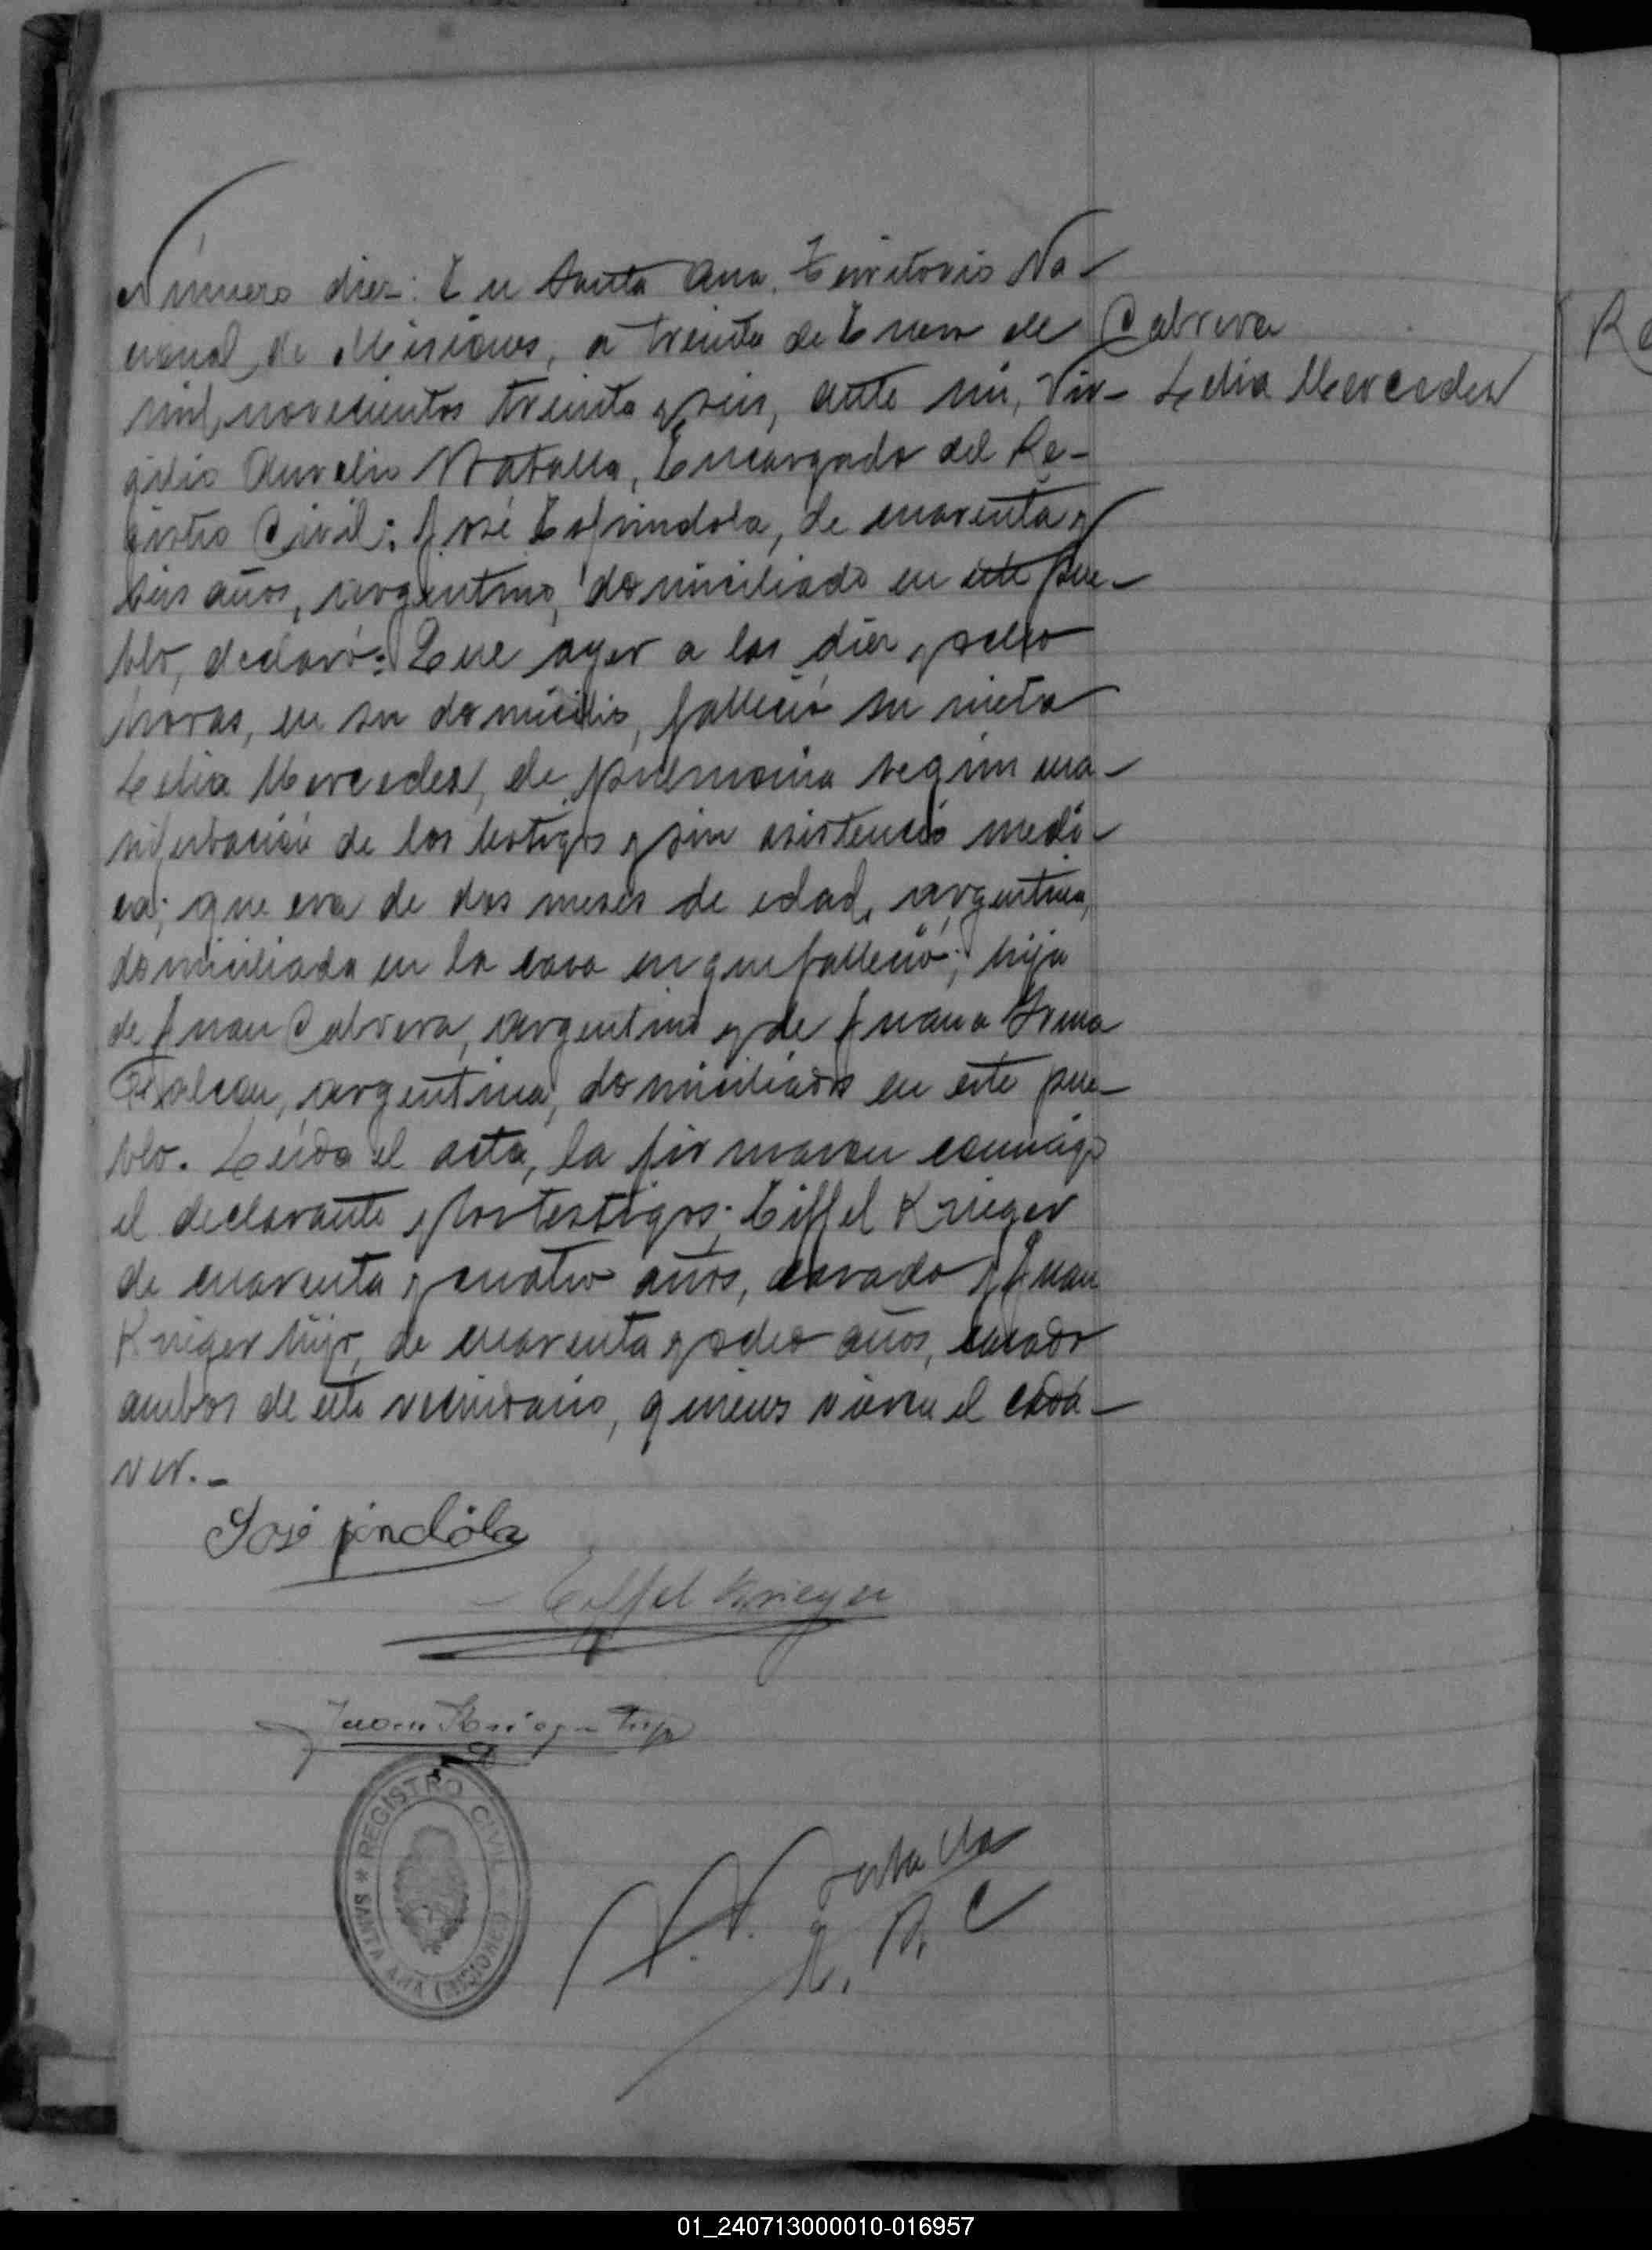 Número diez: En Santa Ana, Territorio Na-
cional de Misiones, a treinta de Enero de
mil novecientos treinta y seis, ante mi, Vir-
gilio Aurelio Natalla, Encargado del Re-
gistro Civil: José Espindola, de cuarenta y
seis años, argentino, domiciliado en este pue-
blo, declaró: Que ayer a las diez y ocho
horas, en su domicilio, falleció su nieta
Lelia Mercedes, de pulmonia según ma-
nifestación de los testigos y sin asistencia medi-
ca; que era de dos meses de edad, argentina,
domiciliada en la casa en que falleció; hija
de Juan Cabrera, argentino y de Juana Irma
argentina, domiciliados en este pue-
blo. Leida el acta, la firmaron conmigo
el declarante y los testigos: Eiffel Krieger
de cuarenta y cuatro años, casado y Juan
Krieger hijo, de cuarenta y ocho años, casado
ambos de este vecindario, quienes vieron el cada-
ver.-
Cabrera
Lelia Mercedes
José pindola
Eiffel Krieger
Juan Krieger hijo
REGISTRO CIVIL
SANTA ANA (MISIONES)
E. R. C
Re
01_240713000010-016957